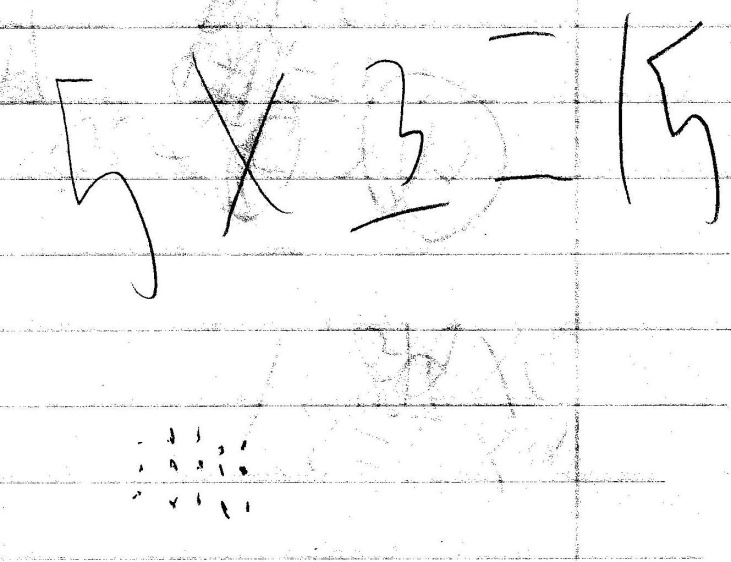 5 X 3 = 15